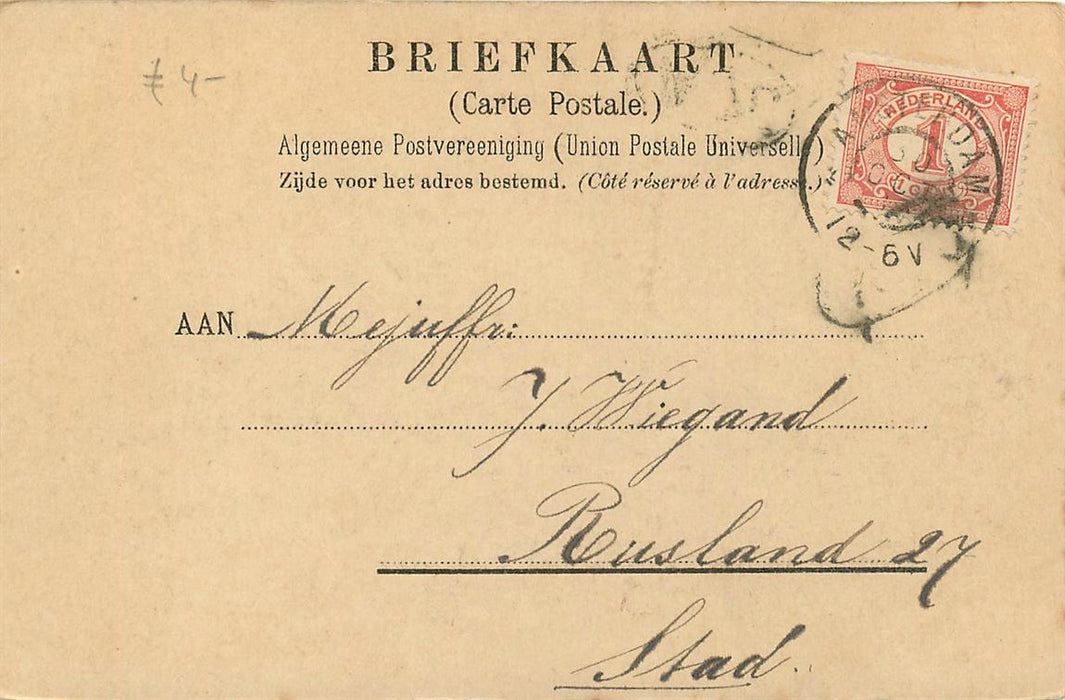 BRIEFKAART
(Carte Postale.)
Algemeene Postvereeniging (Union Postale Universelle)
Zijde voor het adres bestemd. (Côté réservé à l'adresse.)
4-
NEDERLAND
1
AMSTERDAM
12-6V
AAN Mejuffr:
J. Wiegand
Rusland 27
Stad.